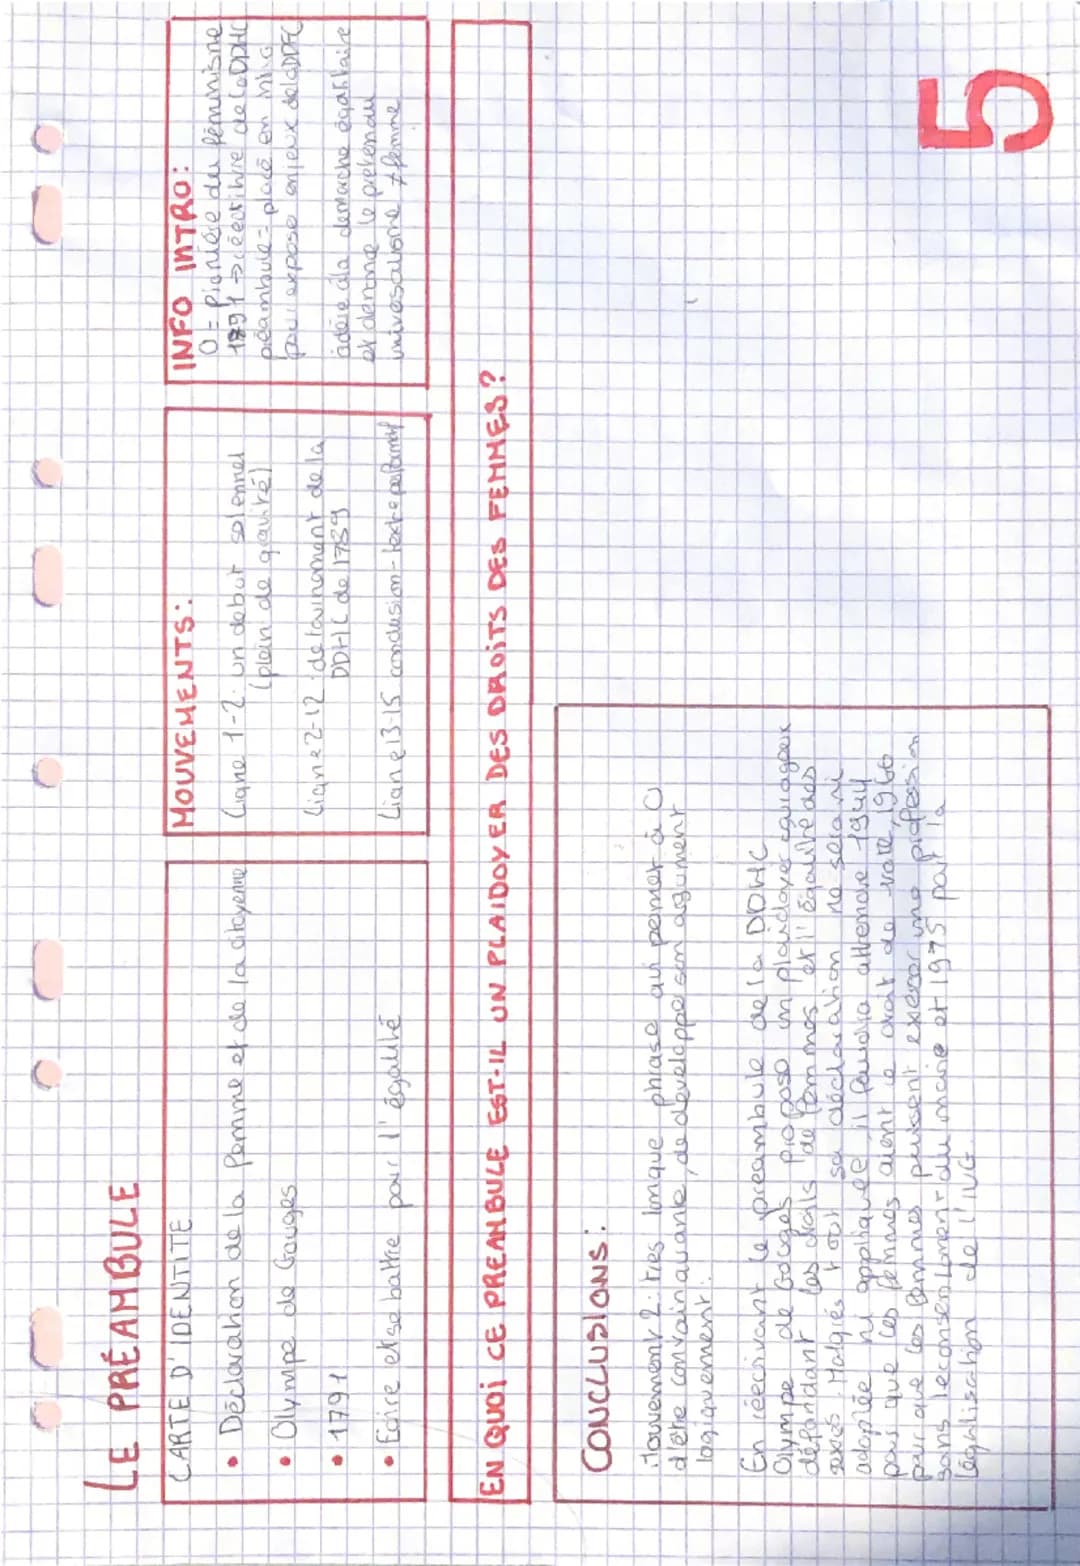 LE PRÉAMBULE
CARTE D'IDENTITE
• Déclaration de la femme et de la citoyenne
• Olympe de Gouges
• 1791
• Ecire et se battre pour l'égalité
MOUVEMENTS:
Ligne 1-2: un debut solennel
(plein de gravité)
Ligne 2-12: detournement de la
DDHC de 1789
Ligne 13-15 conclusion - texte performatif
INFO INTRO:
O = Pionière du féminisme
1791 → réécriture de la DDHC
préambule = placé en
pour expose enjeux de la DDFC
adère à la demarche égalitaire
et denonce le pretendu
universalisme ≠ femme
EN QUOI CE PREAMBULE EST-IL UN PLAIDOYER DES DROITS DES FEMMES?
CONCLUSIONS:
Mouvement 2: tres longue phrase qui permet à O
d'être convainquante, de developpe son argument
logiquement.
En réécrivant le preambule de la DDHC
Olympe de Gouges propose un plaidoyer courageux
défendant les droits de femmes et l'égalité des
sexes. Malgres tout sa déclaration ne sera ni
adoptée ni appliquée il faudra attendre 1944
pour que les femmes aient le droit de vote, 1966
pour que les femmes puissent exercer une profession
sans le consentement du marie et 1975 pour la
légalisation de l'IVG.
5